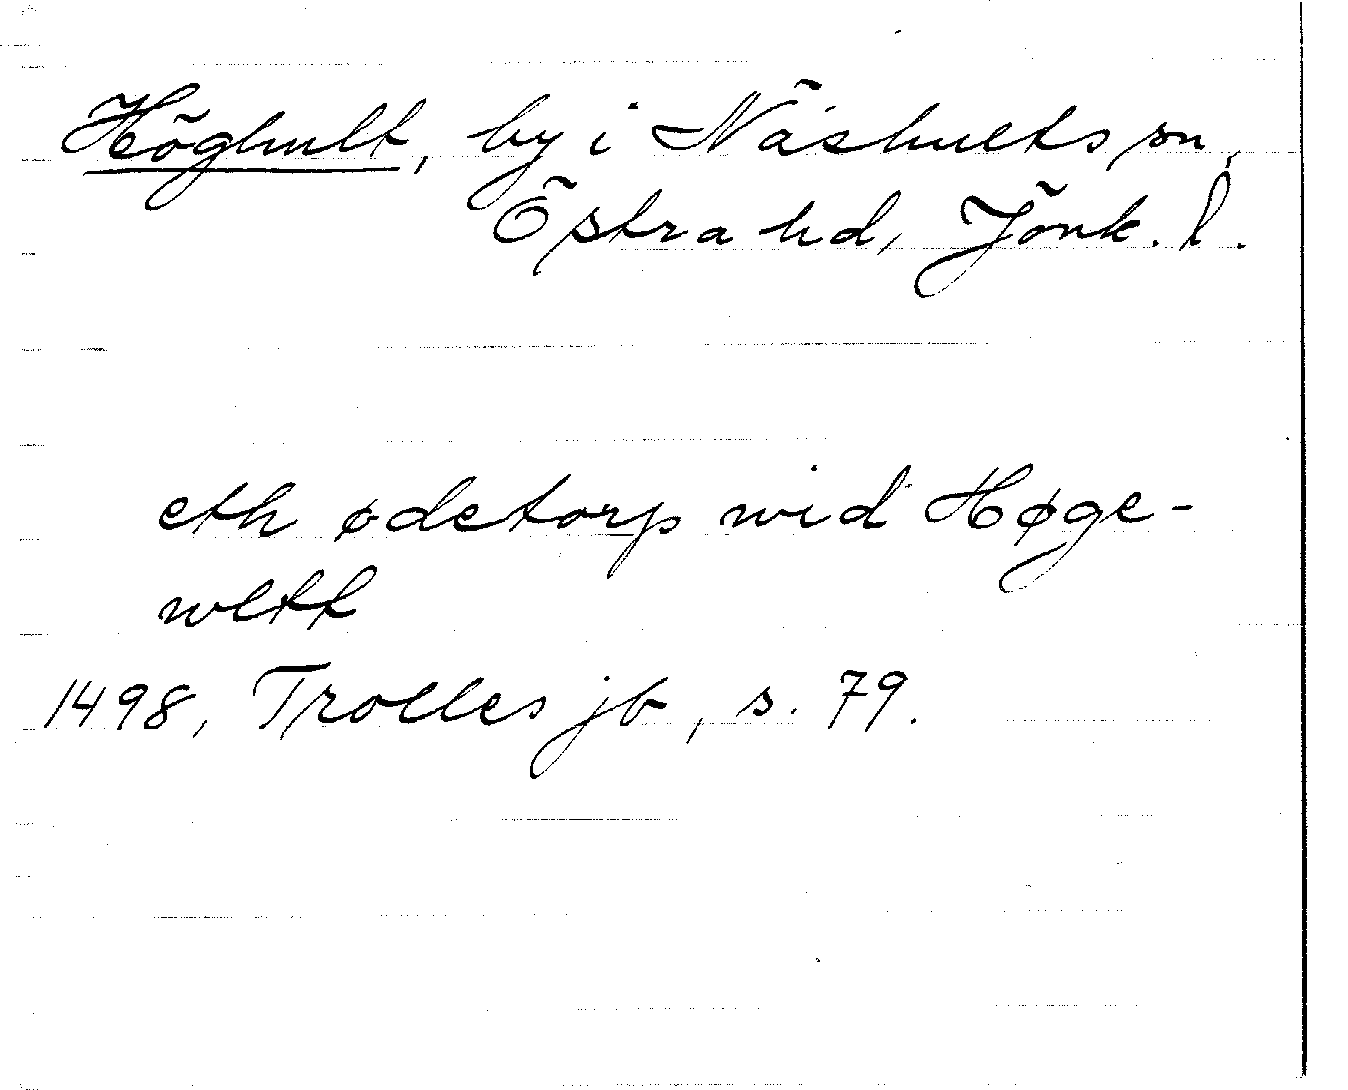 Höghult, by i Näshults sn,
Östra hd, Jönk. l.
eth ødetorp wid Høge-
wltt
1498, Trolles jb, s. 79.